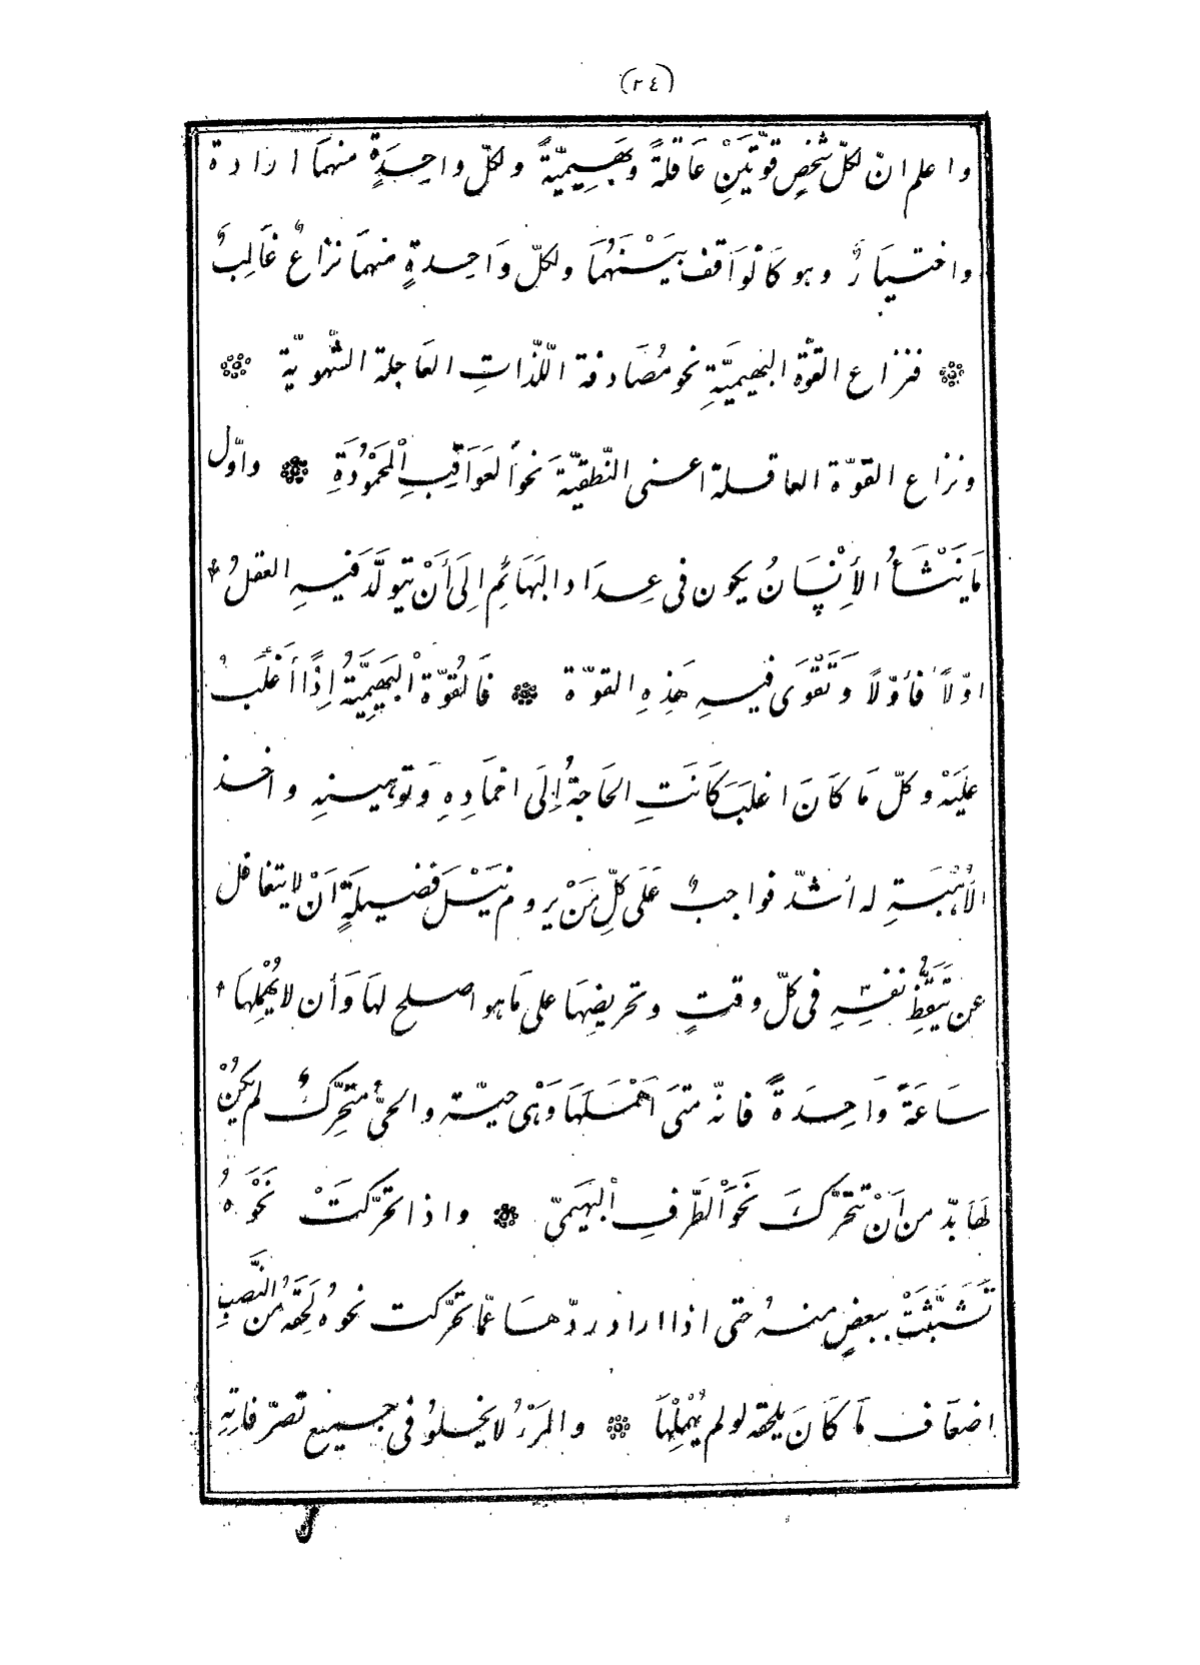 (٣٤)
واعلم انّ لكلّ شخصٍ قوّتَيْنِ عَاقلةً وبَهِيميّةً ولكلّ واحِدَةٍ منهمَا ارادة
واختيَارٌ وهو كَالوَاقف بَيْنَهُمَا ولكلّ وَاحدةٍ منهمَا نزاعٌ غَالِبٌ
فنزاع القوّة البَهيميَّةِ نحو مُصَادفة اللّذّاتِ العَاجلة الشّهويّة
ونزاع القوّة العاقلة اعنى النّطقيّةَ نحوَ العَوَاقِبِ الْمَحْمُودَةِ واوّل
مَا يَنْشَأُ الأِنْسَانُ يكون فى عِدَاد البَهَائِمِ اِلَى أَنْ يتولَّدَ فيهِ العقلُ
اوّلاً فأوّلاً وَتَقْوَى فيهِ هَذِهِ القوّة فَالقُوّة الْبَهِيمِيَّةُ اِذًا أَغْلَبُ
عليَهْ وكلّ مَا كَانَ اغلبَ كَانَتِ الحَاجةُ إِلَى اخمَادِهِ وَتوهينهِ واخذ
الاُهْبَةِ له أشدّ فواجبٌ عَلَى كلِّ مَنْ يروم نَيْلَ فضيلَةٍ اَنْ لا يتغافل
عن تَيَقُّظِ نفسِهِ فى كلّ وقتٍ وتحريضِهَا على مَا هو اصلح لهَا وَأن لا يُهْمِلَهَا
سَاعَةً وَاحِدَةً فانّه متَى اَهْمَلَهَا وَهْىَ حيّة والحىُّ متحَرِّكٌ لم يَكُنْ
لهَا بدّ من اَنْ تتحَرَّكَ نَحْوَ الطَّرَفِ الْبَهَيمىّ واذا تحَرَّكَتْ نَحْوَهُ
تَشَبَّثَتْ ببعضٍ منهُ حتى اذا اراد ردّهَا عمّا تحرّكت نحوهُ لَحِقَهُ من النَّصَبِ
اضعَاف مَا كَانَ يلحقه لو لم يُهْمِلْهَا والمَرْءُ لا يخلُو فى جميع تصرّفاتِهِ